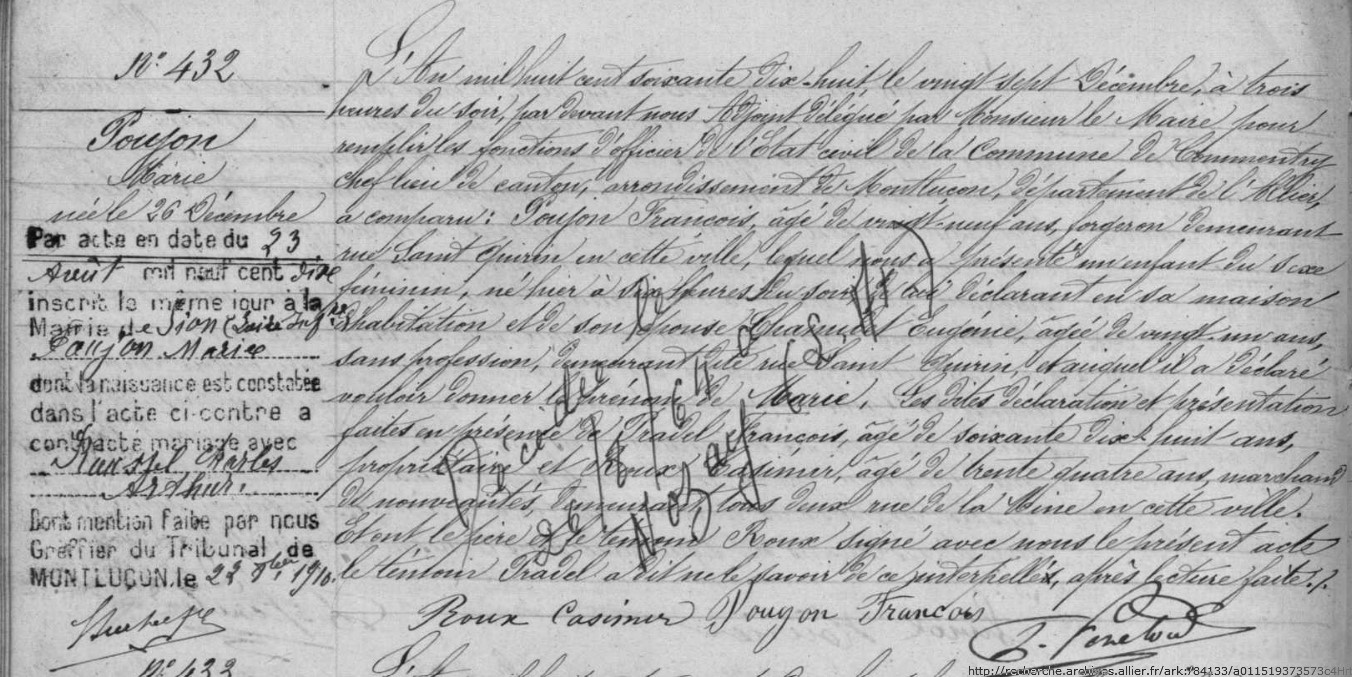 N° 432
Poujon
Marie
née le 26 Décembre
Par acte en date du 23
Août mil neuf cent dix
inscrit le même jour à la
Mairie de Sion (Suisse)
Poujon Marie
dont la naissance est constatée
dans l'acte ci-contre a
contracté mariage avec
Charles
Arthur.
Dont mention faite par nous
Greffier du Tribunal de
MONTLUÇON, le 22 1910.
L'An mil huit cent soixante dix-huit, le vingt sept Décembre, à trois
heures du soir, par devant nous Adjoint délégué par Monsieur le Maire pour
remplir les fonctions d'officier de l'Etat civil de la Commune de Commentry
chef lieu de canton, arrondissement de Montluçon, département de l'Allier,
a comparu: Poujon François, âgé de vingt-neuf ans, forgeron demeurant
rue Saint Quirin en cette ville, lequel nous a présenté un enfant du sexe
féminin, né hier à six heures du soir, de lui déclarant en sa maison
d'habitation et de son épouse Eugénie, âgée de vingt-un ans,
sans profession, demeurant dite rue Saint Quirin, et auquel il a déclaré
vouloir donner le prénom de Marie. Les dites déclaration et présentation
faites en présence de Tradel François, âgé de soixante dix-huit ans,
propriétaire et Roux Casimir, âgé de trente quatre ans, marchand
de nouveautés, demeurant tous deux rue de la Mine en cette ville.
Et ont le père et le témoin Roux signé avec nous le présent acte
le témoin Tradel a dit ne le savoir de ce interpellé, après lecture faite./.
Décédée le
26/8/1964 à
Nozay (L. A)
Roux Casimir Pougon François
N° 433
http://recherche.archives.allier.fr/ark:/84133/a011519373573c4Hr